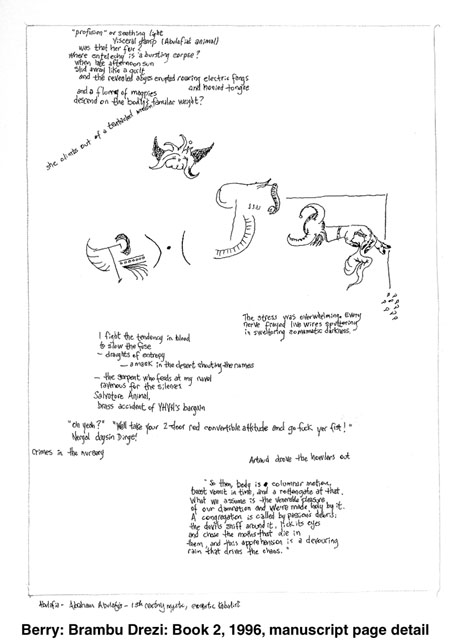 "profusion" or soothing light
visceral (Abulafial animal)
was that her fur?
where entelechy is a bursting corpse?
when late afternoon sun
slid away like a quilt
and the revealed abyss erupted roaring electric fangs
and honied tongue
and a of magpies
descend on the body's famular weight?
she climbs out of a
The stress was overwhelming. Every
nerve frayed live wires sputtering
in sweltering darkness.
I fight the tendency in blood
to slow the fuse
- draughts of entropy
- a mask in the desert shouting the names
- the serpent who feeds at my navel
ravenous for the silences
Salvatore Animal,
brass accident of YHVH's bargain
"Oh yeah?" "Well take your 2-door red convertible attitude and go fuck yer fist!"
Nergal
Crimes in the nursery
Artaud drove the howlers out
"So then, body is a columnar motion,
burnt vomit in time, and a at that.
What we assume is the venerable pleasure
of our damnation and we're made holy by it.
A congregation is called by precious debris;
the devils sniff around it, lick its eyes
and chase the moths that die in
them, and this apprehension is a devouring
rain that drives the chaos."
Abulafia - Abraham Abulafia - 13th century mystic, kabalist
Berry: Brambu Drezi: Book 2, 1996, manuscript page detail